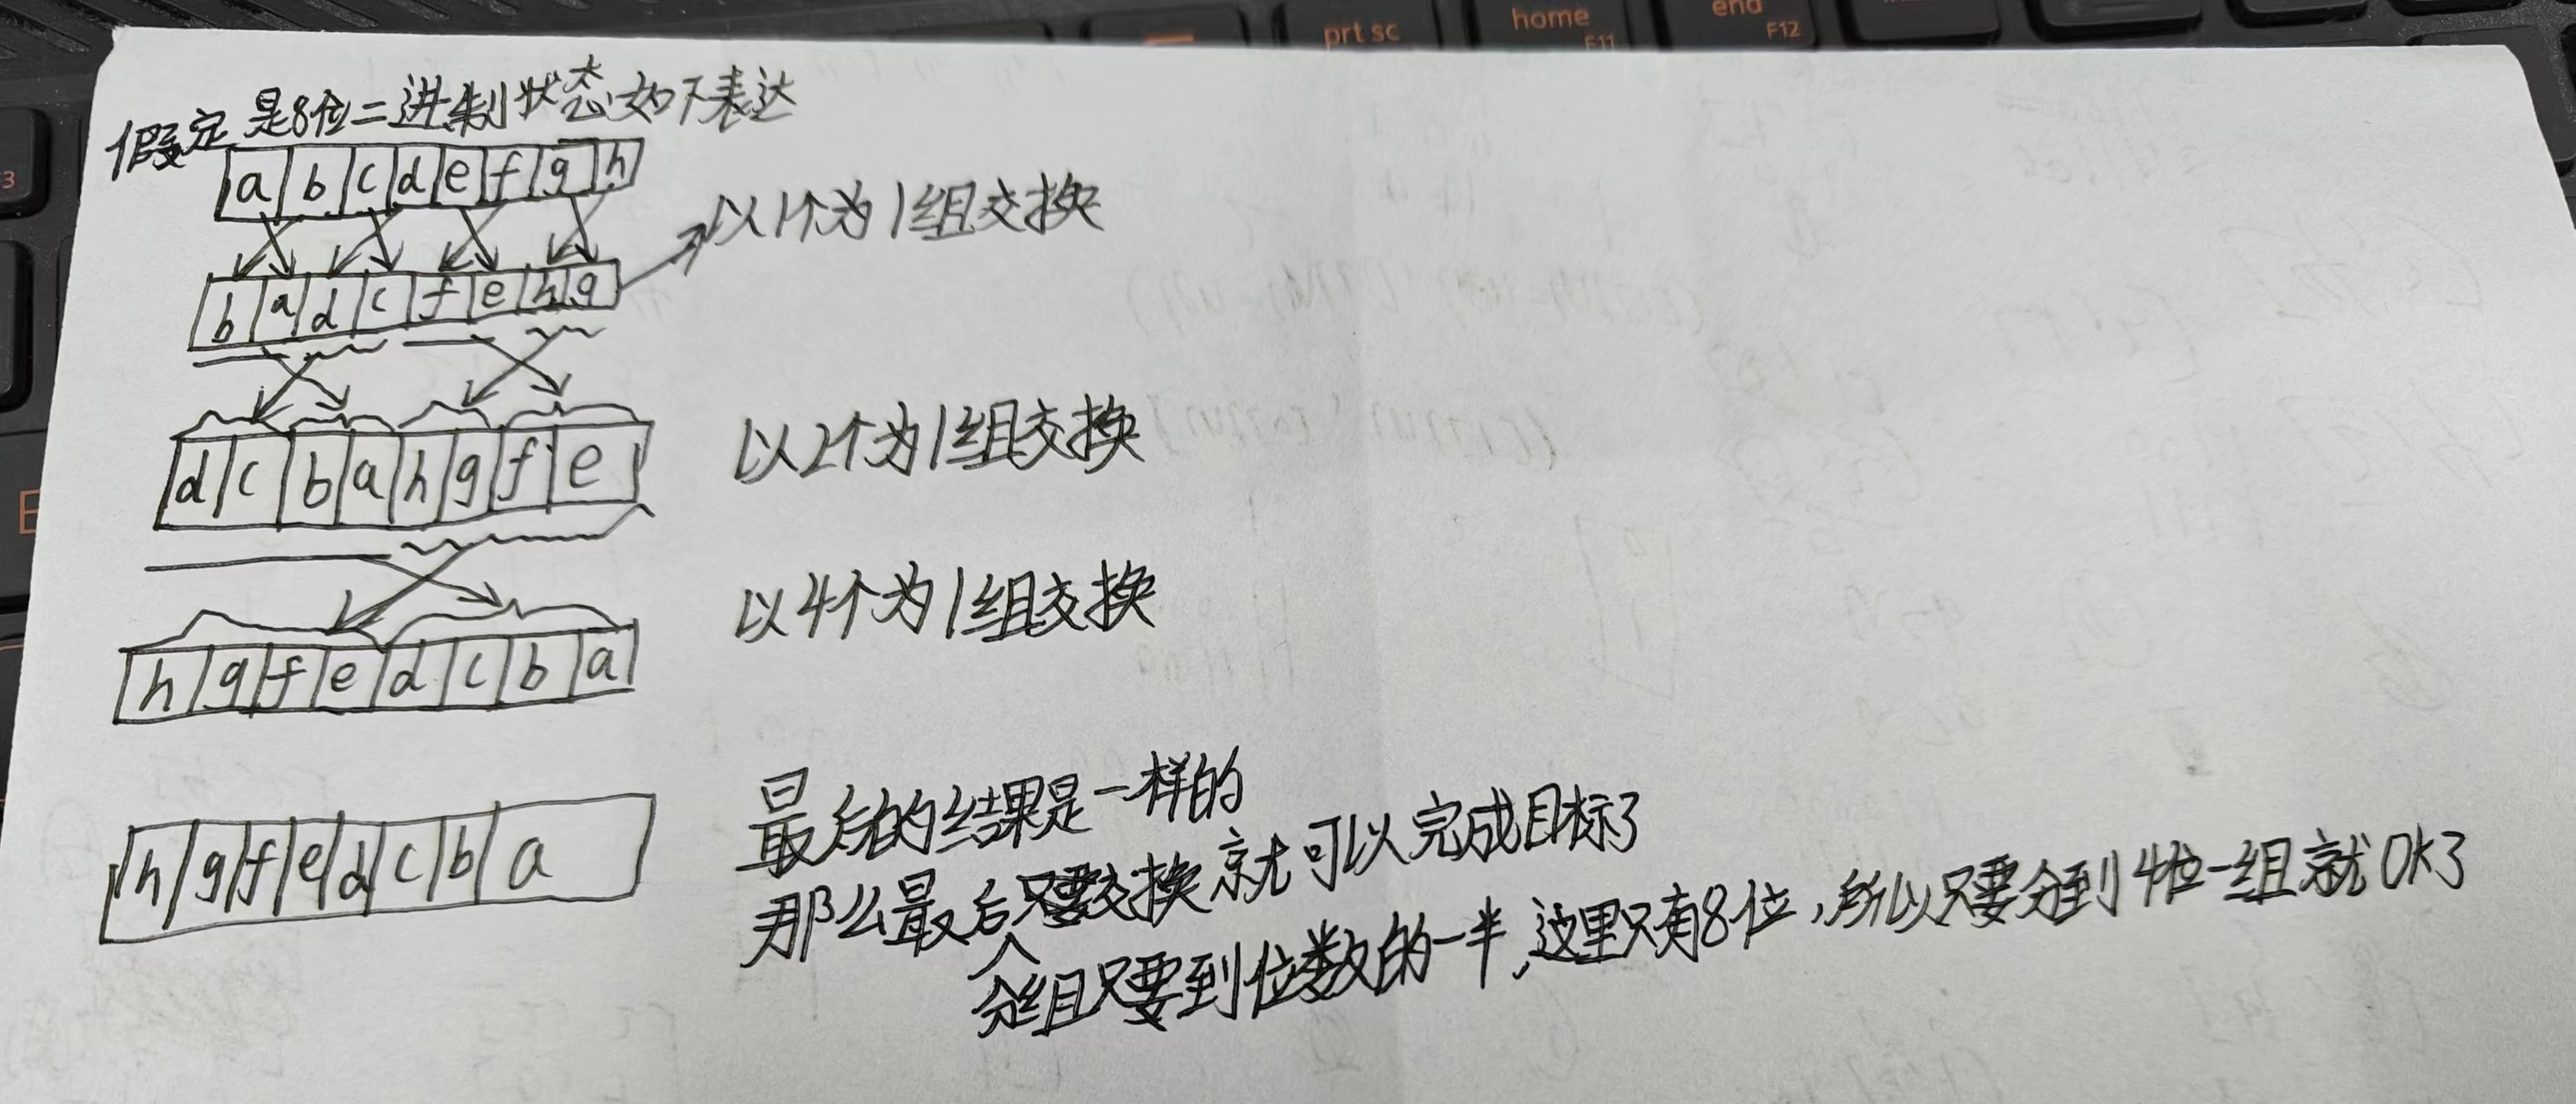 prt sc
home
F11
end
F12
3
E
假定是8位二进制状态如下表达
a b c d e f g h
以1个为1组交换
b a d c f e h g
以2个为1组交换
d c b a h g f e
以4个为1组交换
h g f e d c b a
h g f e d c b a
最后的结果是一样的
那么最后只要交换就可以完成目标了
分组只要到位数的一半,这里只有8位,所以只要分到4位一组就OK了